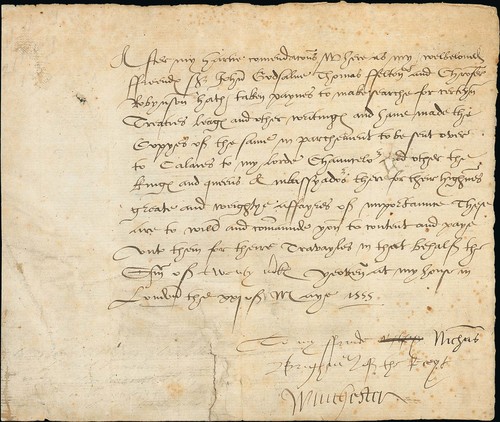 After my hartie comendacons Where as my welbeloved
ffrendes Sr John Godsalve Thomas ffelton and Xpofer
Robynson hath taken paynes to make searche for certeyn
Treaties leages and other writinges and have made the
Coppyes of the same in parchement to be sent over
to Calaies to my lorde Chauncelor and other the
kinges and quenis Ambassyadors there for their highnes
greate and weightye affayres of importaunce These
are to will and commaunde you to content and paye
unto them for theire Travayles in that behalf the
Sum of Twenty markes yeoven at my house in
London the xxj of Maye 1555
To my ffrende Nichas
Brigham of the Receyt
Winchester